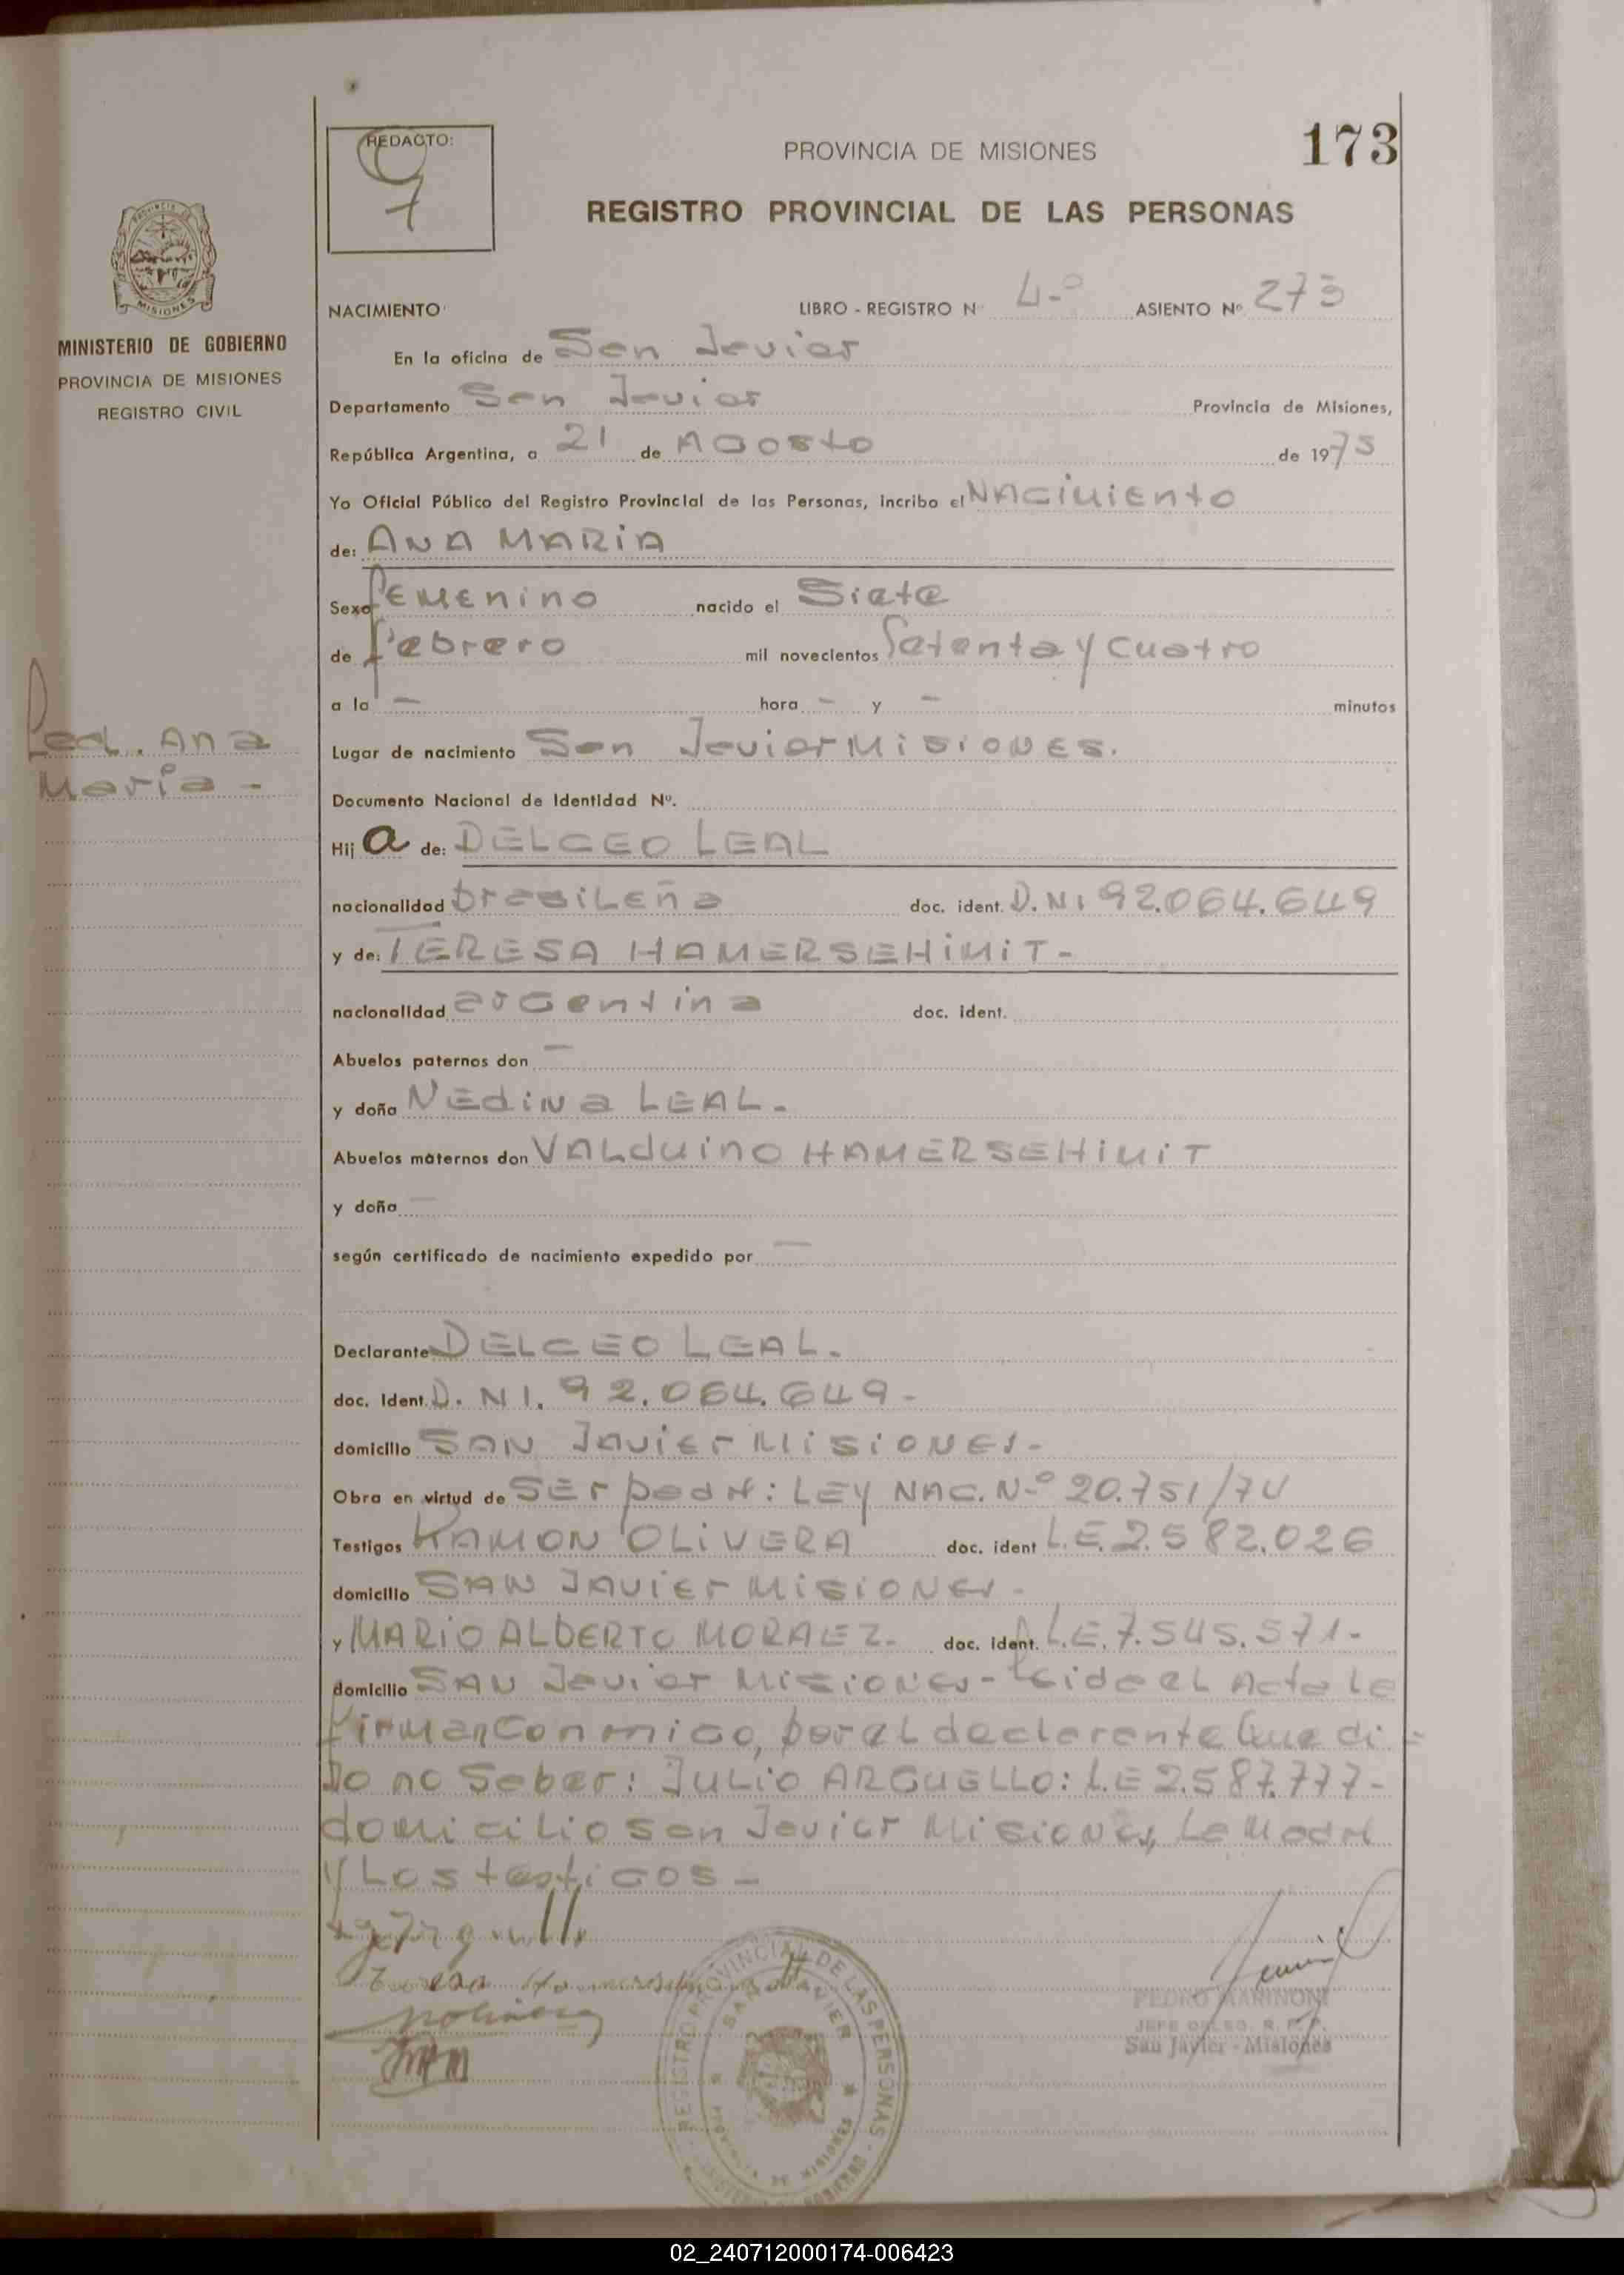 REDACTO:
PROVINCIA DE MISIONES
173
REGISTRO PROVINCIAL DE LAS PERSONAS
PROVINCIA DE
MISIONES
MINISTERIO DE GOBIERNO
PROVINCIA DE MISIONES
REGISTRO CIVIL
NACIMIENTO LIBRO - REGISTRO Nº 4-º ASIENTO Nº 273
En la oficina de San Javier
Departamento San Javier Provincia de Misiones,
República Argentina, a 21 de AGOSTO de 1975
Yo Oficial Público del Registro Provincial de las Personas, incribo el NACIMIENTO
de: ANA MARIA
Sexo femenino nacido el Siete
de febrero mil novecientos Setenta y cuatro
a la — hora — y — minutos
Led. Ana
Maria -
Lugar de nacimiento San Javier MISIONES.
Documento Nacional de Identidad Nº.
Hij a de: DELCEO LEAL
nacionalidad brasileña doc. ident. D.NI 92.064.649
y de: TERESA HAMERSEHIMIT-
nacionalidad argentina doc. ident.
Abuelos paternos don —
y doña NEdiNa LEAL.
Abuelos maternos don VALduino HAMERSEHIMIT
y doña —
según certificado de nacimiento expedido por —
Declarante DELCEO LEAL.
doc. Ident. D. NI. 92.064.649-
domicilio SAN Javier MISIONES-
Obra en virtud de SEr padre: LEY NAC. N-º 20.751/74
Testigos RAMON OLIVERA doc. ident L.E. 2.582.026
domicilio SAN JAVIEr MISIONES-
y MARIO ALBERTO MORAEZ- doc. ident. L.E. 7.545.571-
domicilio SAN Javier MISIONES- Leida el Acta La
firman conmigo, por el declarante que di-
jo no Saber: JULIO ARGUELLO: L.E 2.587.777-
domicilio San Javier Misiones, La Madre
y Los testigos -
REGISTRO PROVINCIAL DE LAS PERSONAS
SAN JAVIER
PROVINCIA DE MISIONES
PEDRO MARINONI
San Javier - Misiones
02_240712000174-006423